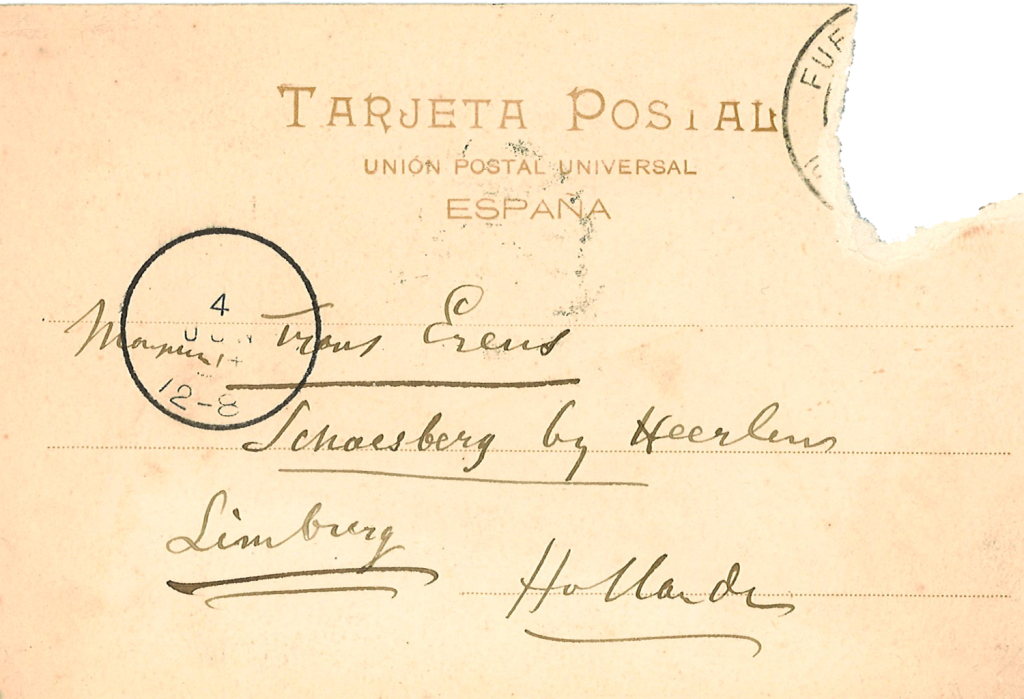 TARJETA POSTAL
UNIÓN POSTAL UNIVERSAL
ESPAÑA
FUE
4
JUN
12-8
Frans Erens
Schaesberg by Heerlen
Limburg
Hollande